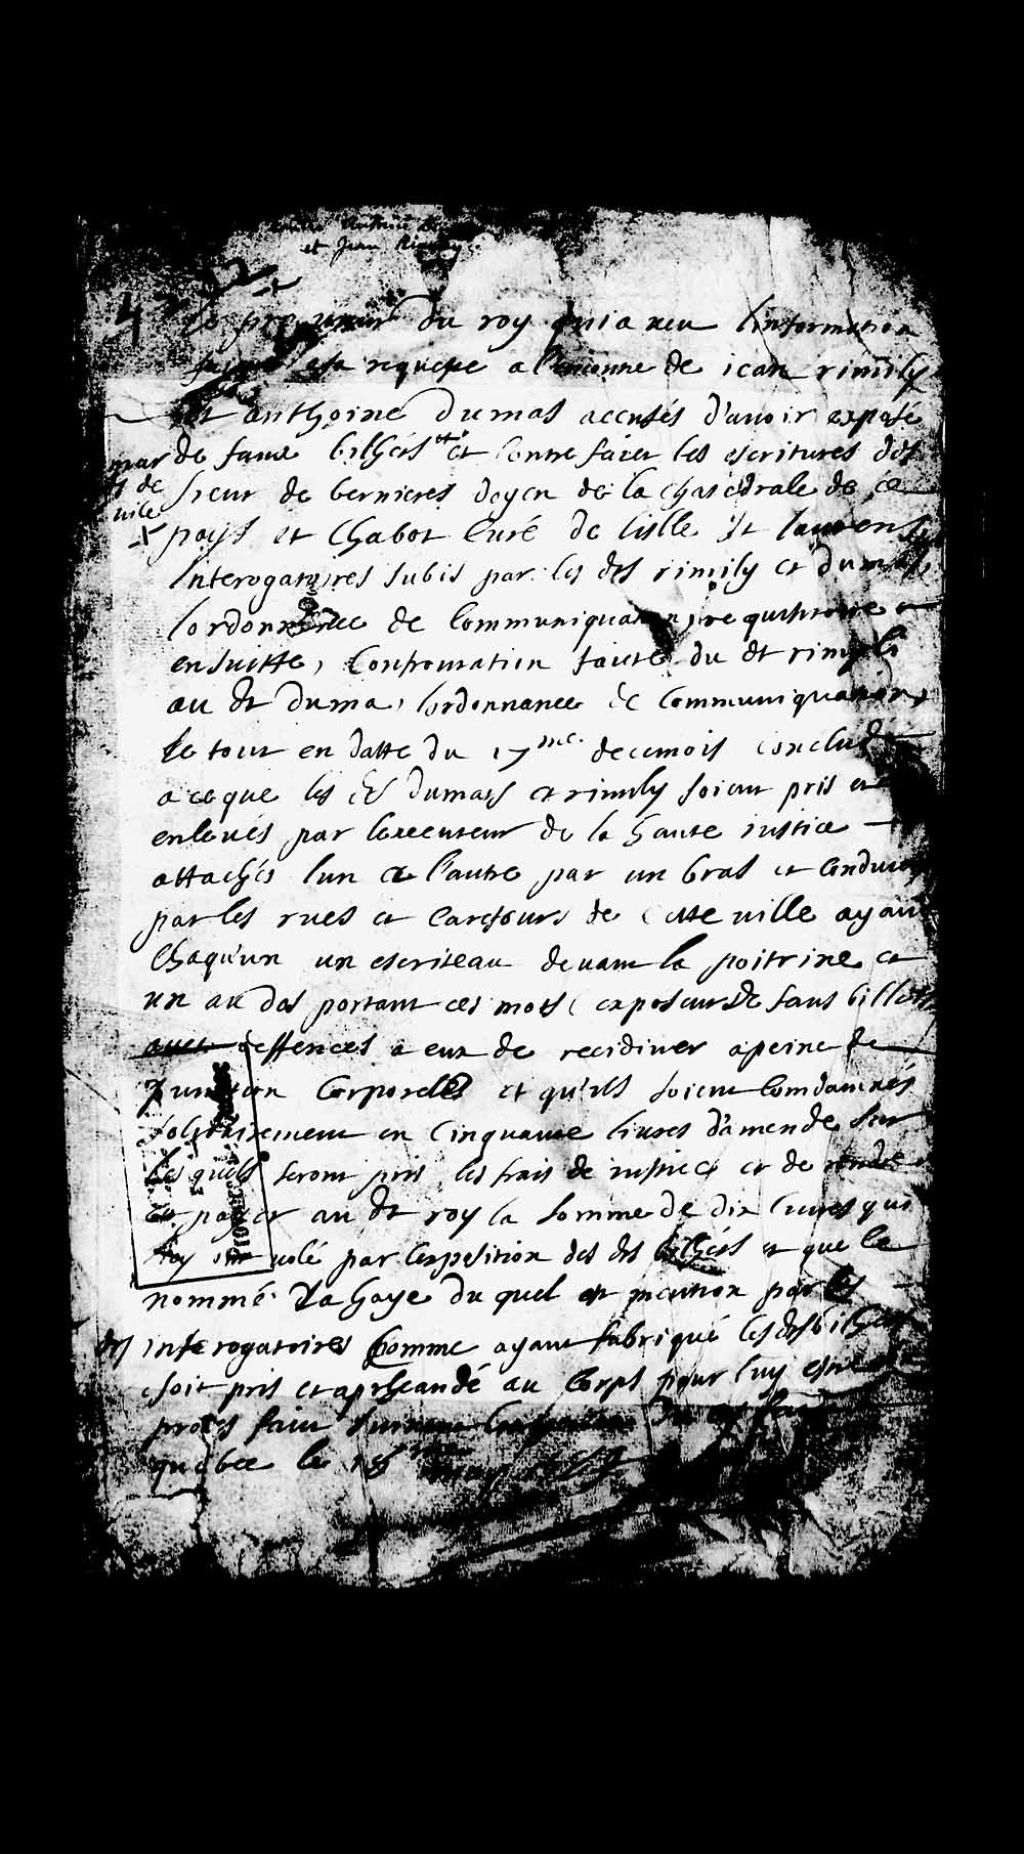 et Jean Rimily
4
Le procureur du roy qui a veu l'information
sa requeste a l'encontre de jean rimily
et anthoine Dumas accusés d'avoir exposé
de faux bilhets et contrefaict les escritures des
mar
de
ville
sieur de bernieres doyen de la chatedrale de ce
pays et Chabot Curé de lislle st laurens,
Interogatoires subis par les dts rimily et dumas
lordonnance de Communiquation, requisitoire
ensuitte, Confrontation faite du dt rimily
au dt Duma, lordonnance de Communiquation,
le tout en datte du 17me de ce mois conclud
a ce que les dts Dumas et rimily soient pris et
enlevés par lexecuteur de la haute iustice
attachés lun a l'autre par un bras et Conduits
par les rues et Carefours de cette ville ayant
Chaqu'un un escriteau devant la poitrine et
un au dos portant ces mots exposeurs de faux billets
avec deffences a eux de recidiver a peine de
punition Corporelle et qu'ils soient Comdamnés
solidairement en Cinquante livres d'amende sur
lesquels seront pris les frais de iustice et de rendre
et payer au dt roy la somme de dix livres
volé par lexposition des dts bilhets et que le
nommé La haye du quel est mention par les
dts interogatoires Comme ayant fabriqué les dts bilhets
soit pris et aprheandé au Corps pour luy estre
proces fait
quebec le 18